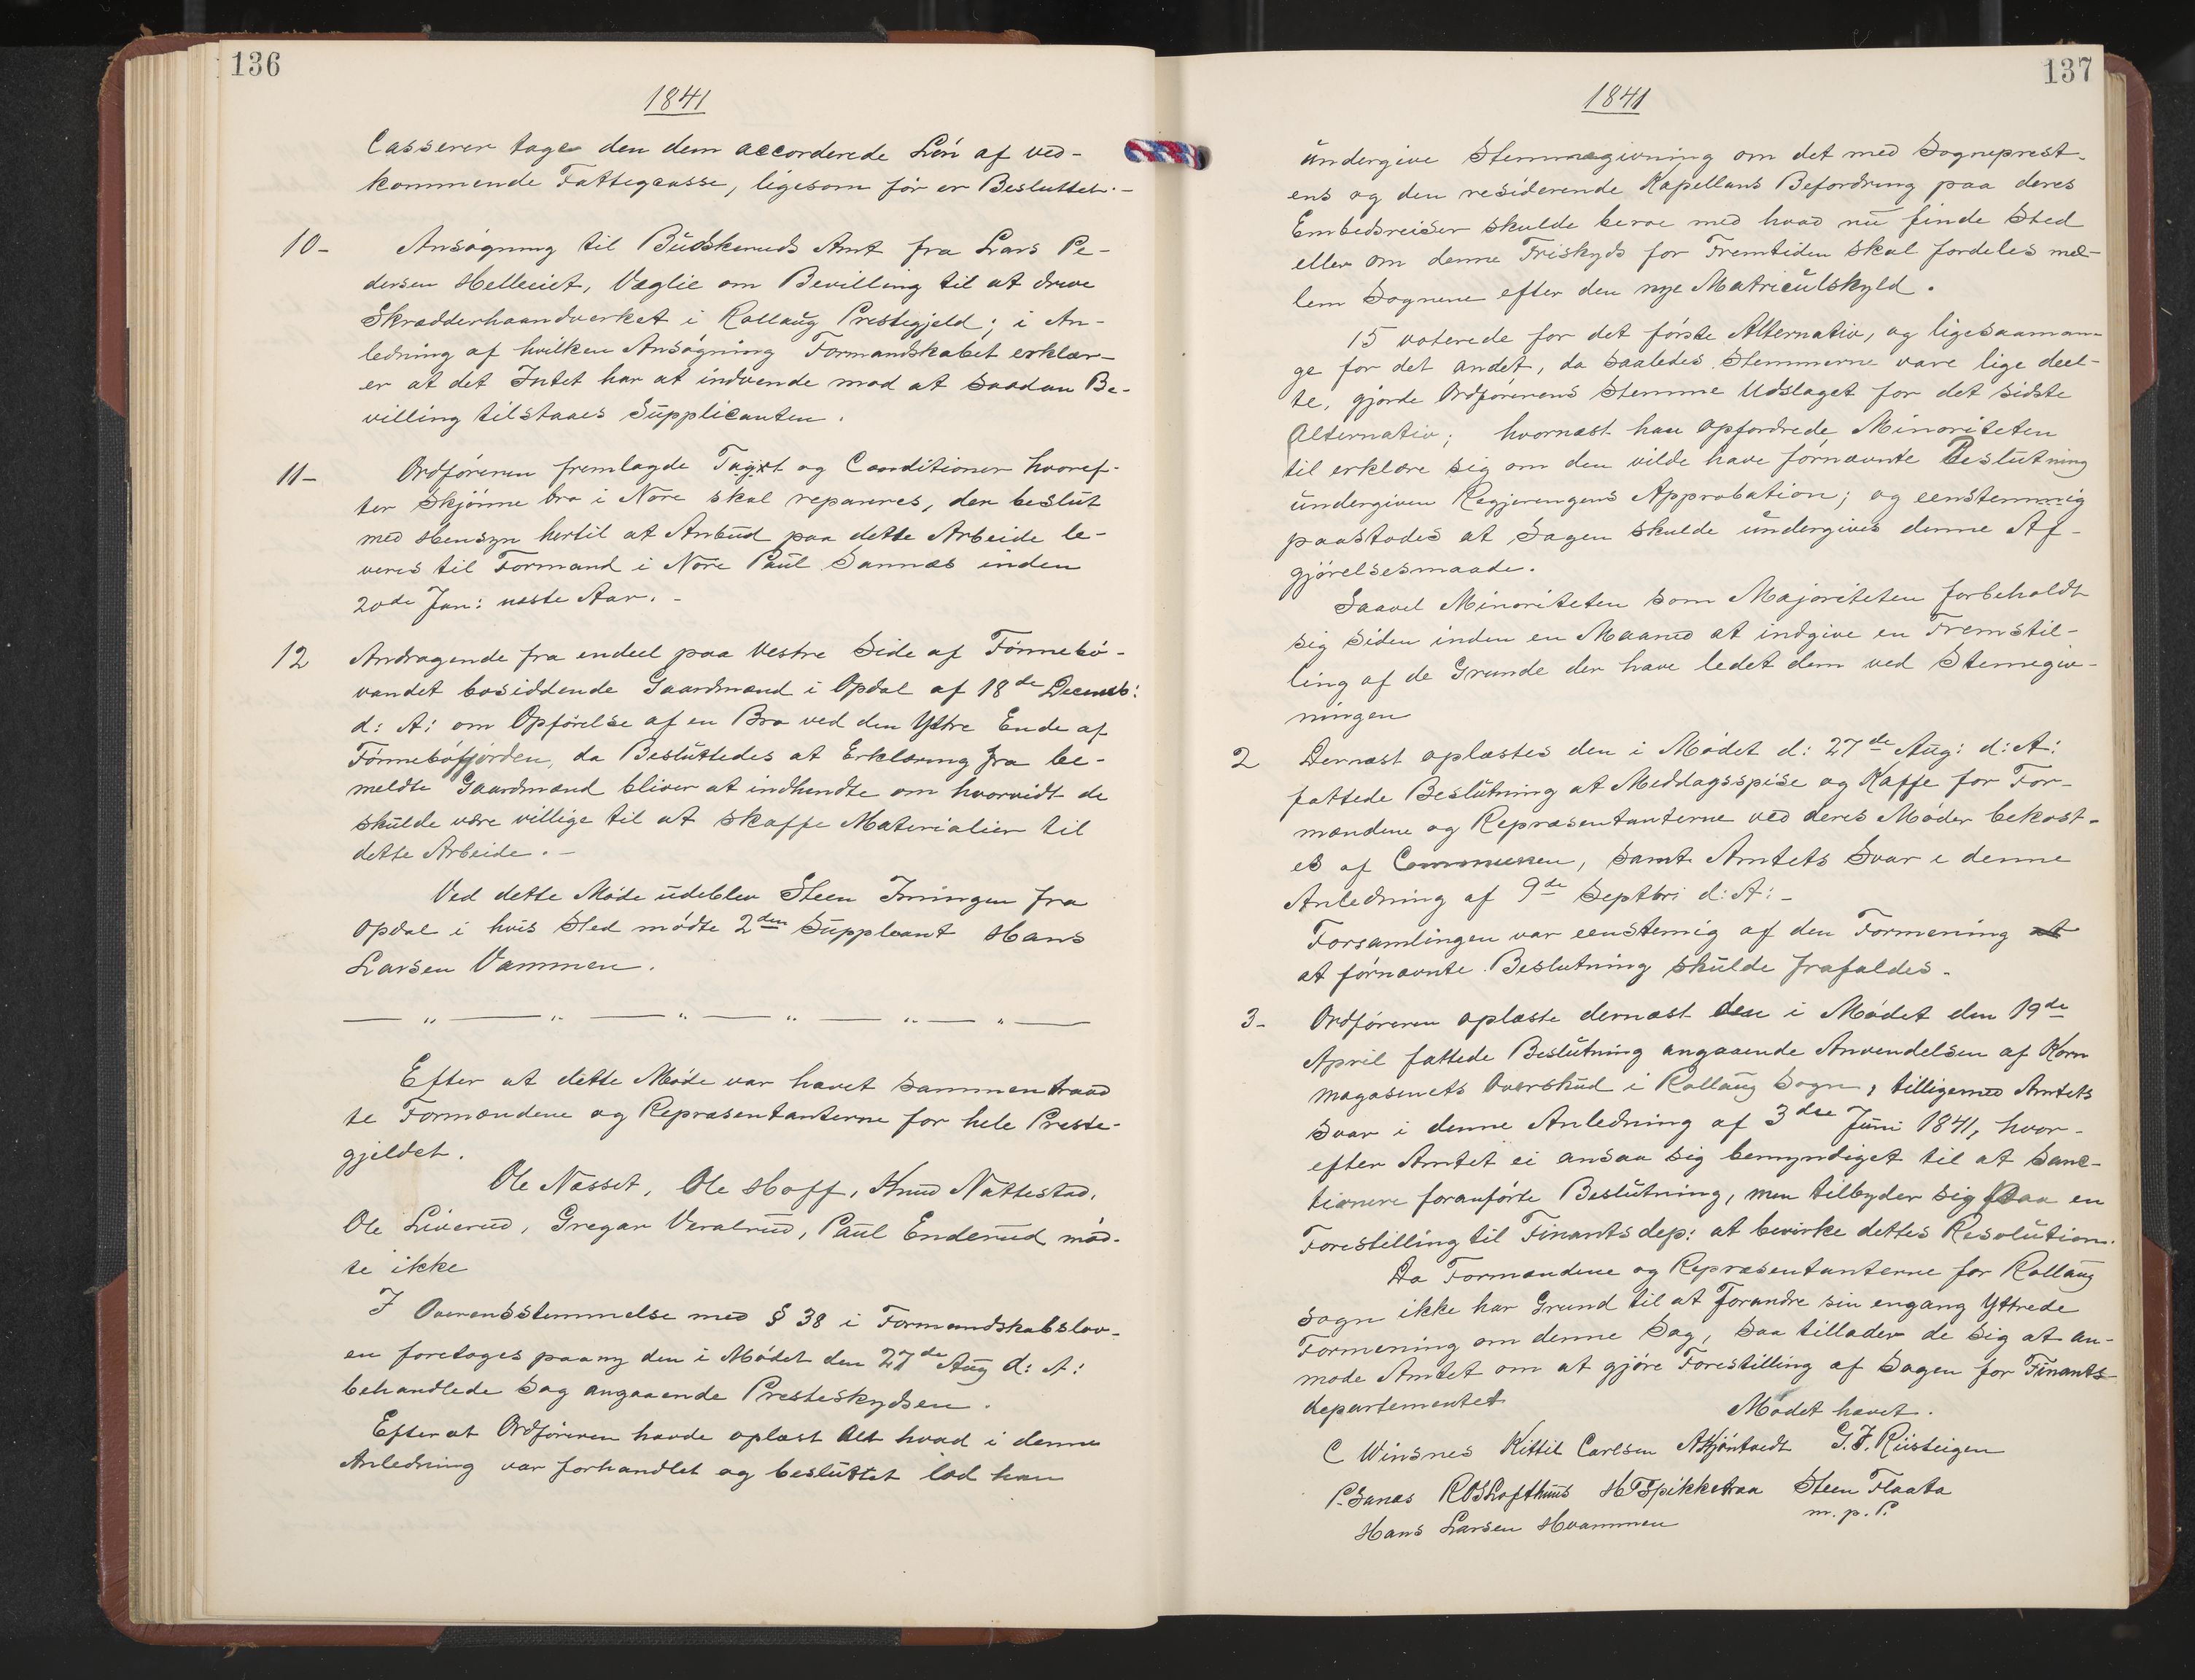 136
1841
Casserer tage den dem accorderede Løn af ved-
kommende Fattigcasse, ligesom før er Besluttet.-
10- Ansøgning til Budskeruds Amt fra Lars Pe-
dersen Helleeiet, Væglie om Bevilling til at drive
Skrædderhaandverket i Rollaug Prestegjeld; i An-
ledning af hvilken Ansøgning Formandskabet erklær-
er at det Intet har at indvende mod at saadan Be-
villing tilstaaes Supplicanten.
11- Ordføreren fremlagde Taxt og Conditioner hvoref-
ter Skjønne bro i Nore skal repareres, der beslut
med Hensyn hertil at Anbud paa dette Arbeide le-
veres til Formand i Nore Paul Sannæs inden
20de Jan: næste Aar. -
12 Andragende fra endeel paa Vestre Side af Tønnebø-
vandet bosiddende Gaardmænd i Opdal af 18de Decemb:
d: A: om Opførelse af en Bro ved den Yttre Ende af
Tønnebøfjorden, da Besluttedes at Erklæring fra be-
meldte Gaardmænd bliver at indhendte om hvorvidt de
skulde være villige til at skaffe Materialier til
dette Arbeide. -
Ved dette Møde udeblev Steen Juvingen fra
Opdal i hvis Sted mødte 2den Suppleant Hans
Larsen Vammen.
— " — " — " — " — " — " —
Efter at dette Møde var hævet sammentraad
te Formændene og Repræsentanterne for hele Preste-
gjeldet.
Ole Næsset, Ole Hoff, Knud Nattestad,
Ole Liverud, Gregar Veralrud, Paul Enderud mød-
te ikke
I Overensstemmelse med § 38 i Formandskabslov-
en foretoges paany den i Mødet den 27de Aug d: A:
behandlede Sag angaaende Presteskydsen.
Efter at Ordføreren havde oplæst Alt hvad i denne
Anledning var forhandlet og besluttet lod han
137
1841
undergive Stemmegivning om det med Sogneprest-
ens og den residerende Kapellans Befordring paa deres
Embedsreiser skulde beroe med hvad nu finde Sted
eller om denne Friskyds for Fremtiden skal fordeles mel-
lem Sognene efter den nye Matriculskyld.
15 voterede for det første Alternativ, og ligesaaman-
ge for det andet, da saaledes Stemmerne vare lige deel-
te, gjorde Ordførerens Stemme Udslaget for det sidste
Alternativ; hvornæst han opfordrede Minoriteten
til erklære sig om den vilde have førnævnte Beslutning
undergiven Regjeringens Approbation; og eenstemmig
paastodes at Sagen skulde undergives denne Af-
gjørelsesmaade.
Saavel Minoriteten som Majoriteten forbeholdt
sig siden inden en Maaned at indgive en Fremstil-
ling af de Grunde der have ledet dem ved Stemegiv-
ningen
2 Dernæst oplæstes den i Mødet d: 27de Aug: d: A:
fattede Beslutning at Meddagsspise og Kaffe for For-
mændene og Repræsentanterne ved deres Møder bekost-
es af Communen, samt Amtets Svar i denne
Anledning af 9de Septbr: d: A: -
Forsamlingen var eenstemig af den Formening at
at førnævnte Beslutning skulde frafaldes.
3- Ordføreren oplæste dernæst den i Mødet den 19de
April fattede Beslutning angaaende Anvendelsen af Korn
magasinets Overskud i Rollaug Sogn, tilligemed Amtets
Svar i denne Anledning af 3die Juni 1841, hvor-
efter Amtet ei ansaa sig bemyndiget til at Sanc-
tionere foranførte Beslutning, men tilbyder sig paa en
Forestilling til Finantsdep: at bevirke dettes Resolution.
Da Formændene og Repræsentanterne for Rollaug
Sogn ikke har Grund til at forandre sin engang Yttrede
Formening om denne Sag, saa tillader de sig at an-
mode Amtet om at gjøre Forestilling af Sagen for Finants-
departementet
Mødet hævet.
C Winsnes Kittil Carlsen AKjøntvedt G.J. Riisteigen
P. Sanæs ROSLofthuus HTSpikketraa Steen Flaata
m. p. P.
Hans Larsen Hvammen